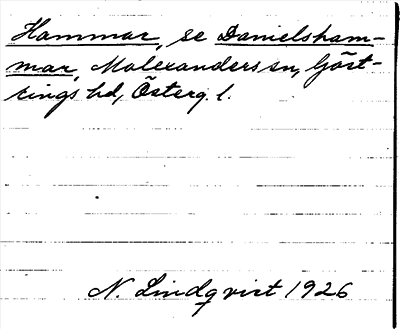 Hammar, se Danielsham-
mar, Malexanders sn, Göst-
rings hd, Österg. l.
N. Lindqvist 1926